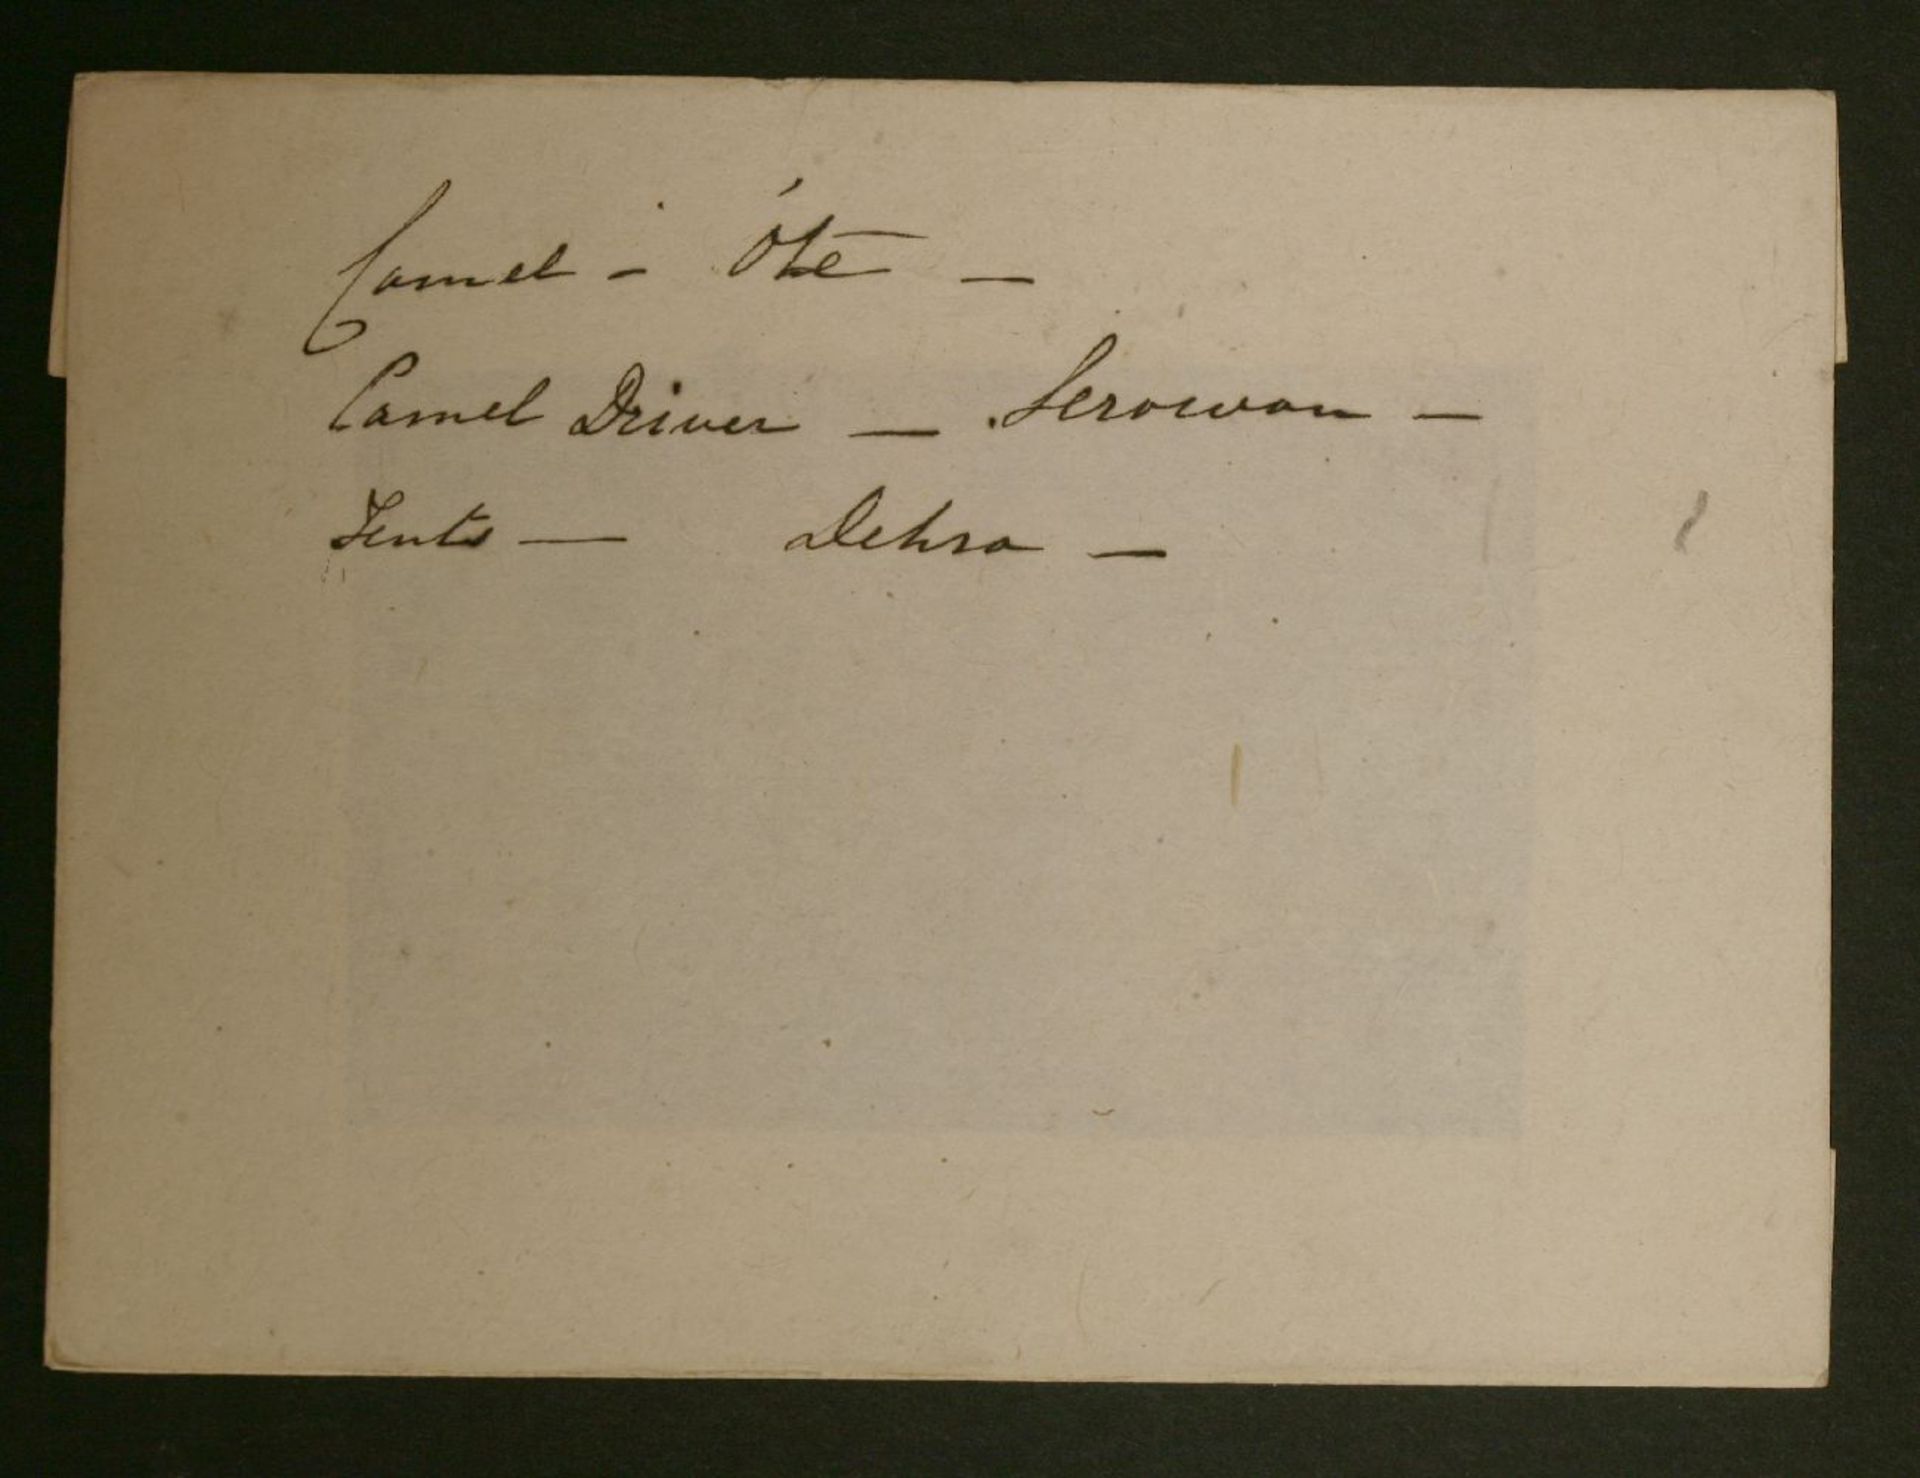 Camel - Óte -
Camel Driver - Serowan -
Tents - Dehra -